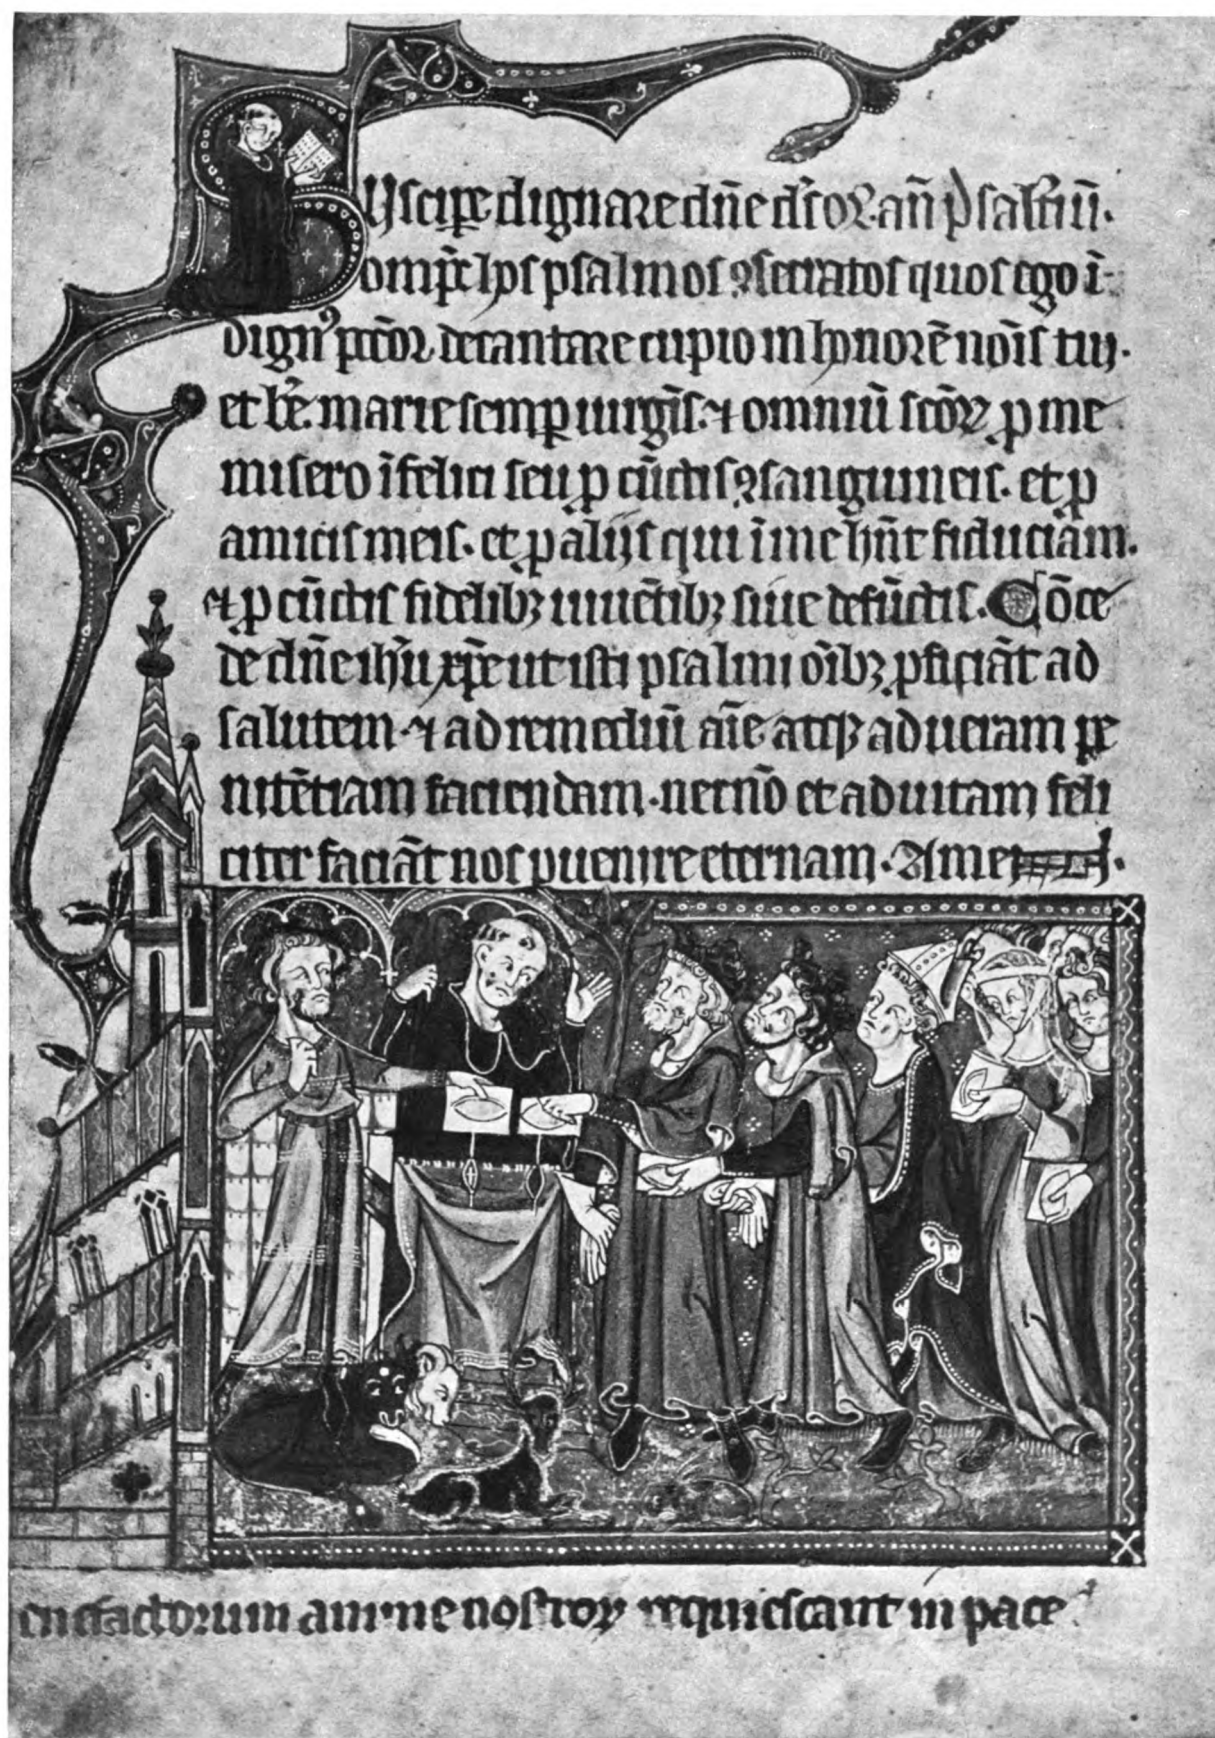 Suscipe dignare dn̄e ds̄ oīpo. hūn psalt̄iū.
om̄pc̄ hos psalmos ꝯsecratos quos ego ī
dignꝰ pcc̄oꝛ decantare cupio in honorē nōis tui.
et bē. marie semꝑ uirgīs. ⁊ omniū sc̄oꝝ ꝓ me
misero īfelici seu ꝓ cūctis ꝯsanguineis. et ꝓ
amicis meis. et ꝓ alijs qui ī me hn̄t fiduciam.
⁊ ꝓ cūctis fidelibꝫ uiuētibꝫ siue defūctis. Cōce
de dn̄e ih̄u xp̄e ut isti psalmi oībꝫ ꝓficiāt ad
salutem. ⁊ ad remediū aīe atqꝫ ad ueram pe
nitētiam faciendam. necnō et ad uitam feli
citer faciāt nos ꝑuenire eternam. Amen.
enefactorum anime nostroꝝ requiescant in pace